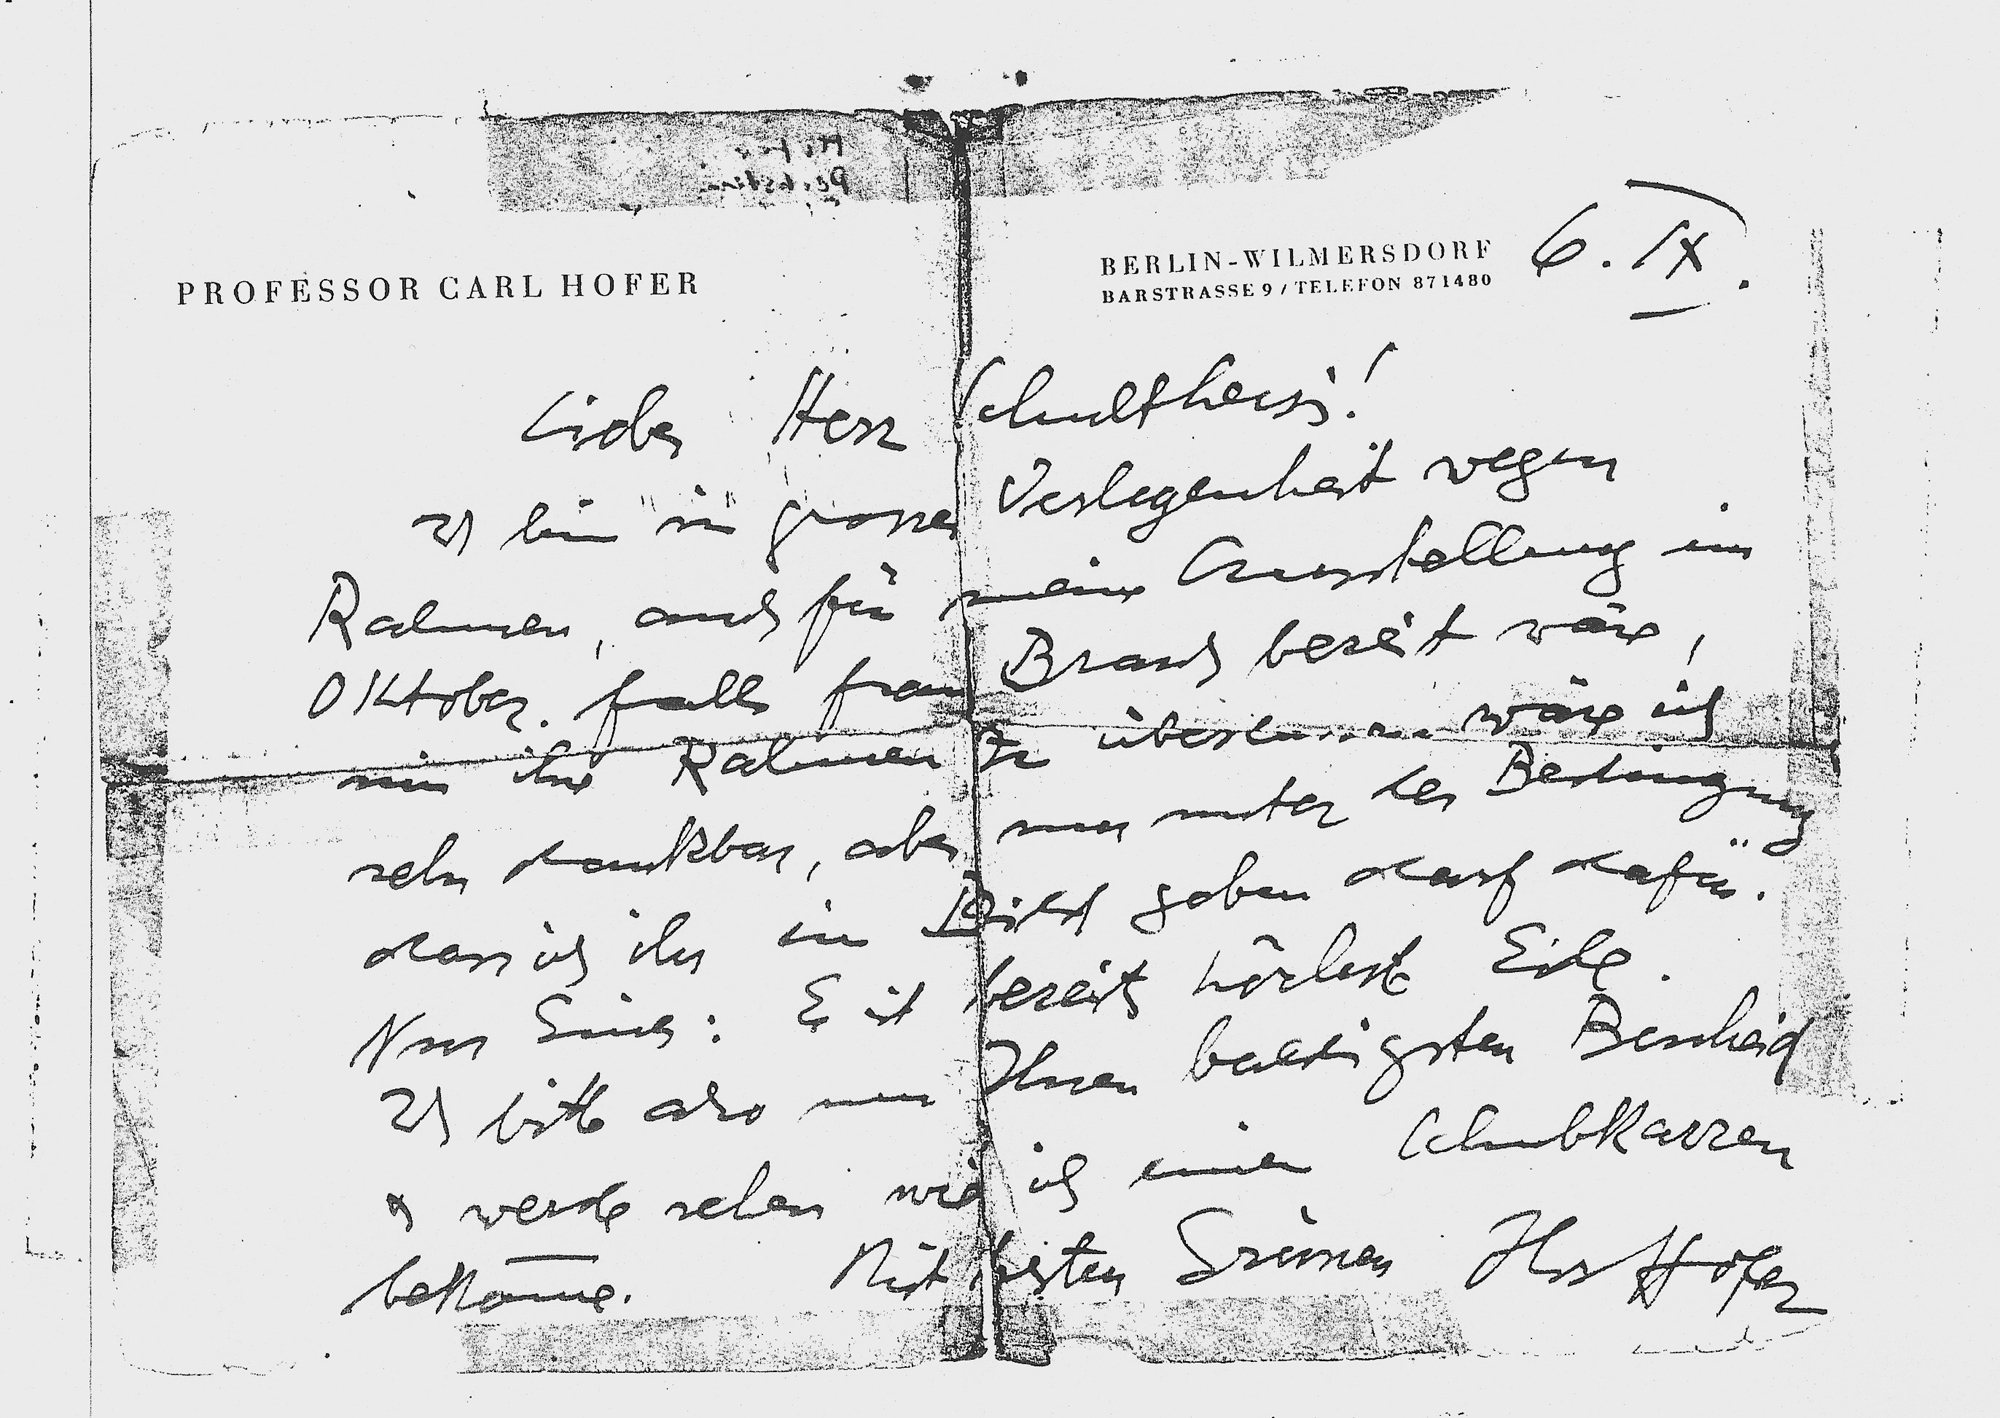 PROFESSOR CARL HOFER
BERLIN-WILMERSDORF
BARSTRASSE 9 / TELEFON 871480
6. IX.
Lieber Herr Schultheiss!
Ich bin in grosser Verlegenheit wegen
Rahmen, auch für meine Ausstellung im
Oktober. falls frau Brasch bereit wäre,
mir ihre Rahmen zu überlassen wäre ich
sehr dankbar, aber nur unter der Bedingung
dass ich ihr ein Bild geben darf dafür.
Nur Eines: Es ist bereits höchste Eile.
Ich bitte also um Ihren baldigsten Bescheid
& werde sehen wie ich einen Schubkarren
bekome. Mit besten Grüssen Ihr Hofer